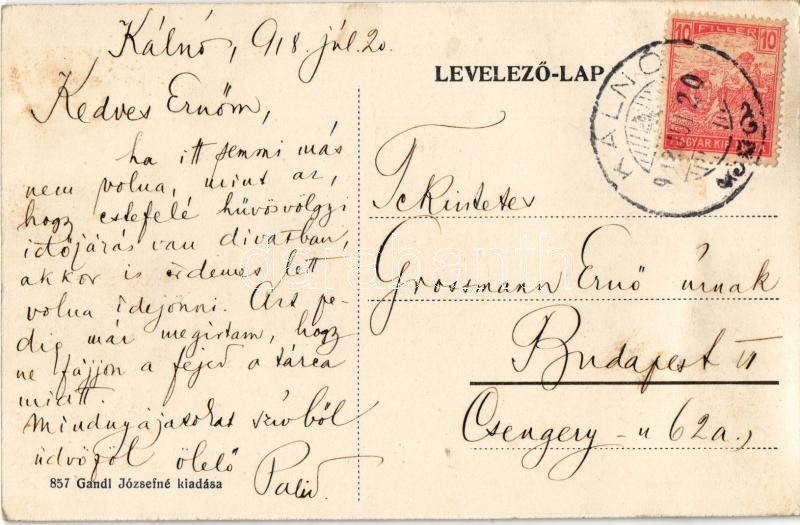 Kálnó, 918. júl. 20.
Kedves Ernőm,
ha itt semmi más
nem volna, mint az,
hogy estefelé hűvösvölgyi
időjárás van divatban,
akkor is érdemes lett
volna idejönni. Azt pe-
dig már megirtam, hogy
ne fájjon a fejed a tárca
miatt.
Mindnyájatokat szivből
üdvözöl ölelő
857 Gandl Józsefné kiadása
LEVELEZŐ-LAP
10 FILLÉR 10
MAGYAR KIR.
KÁLNÓ
Tekintetes
Grossmann Ernő úrnak
Budapest VI
Csengery-u 62a.,
darabanth